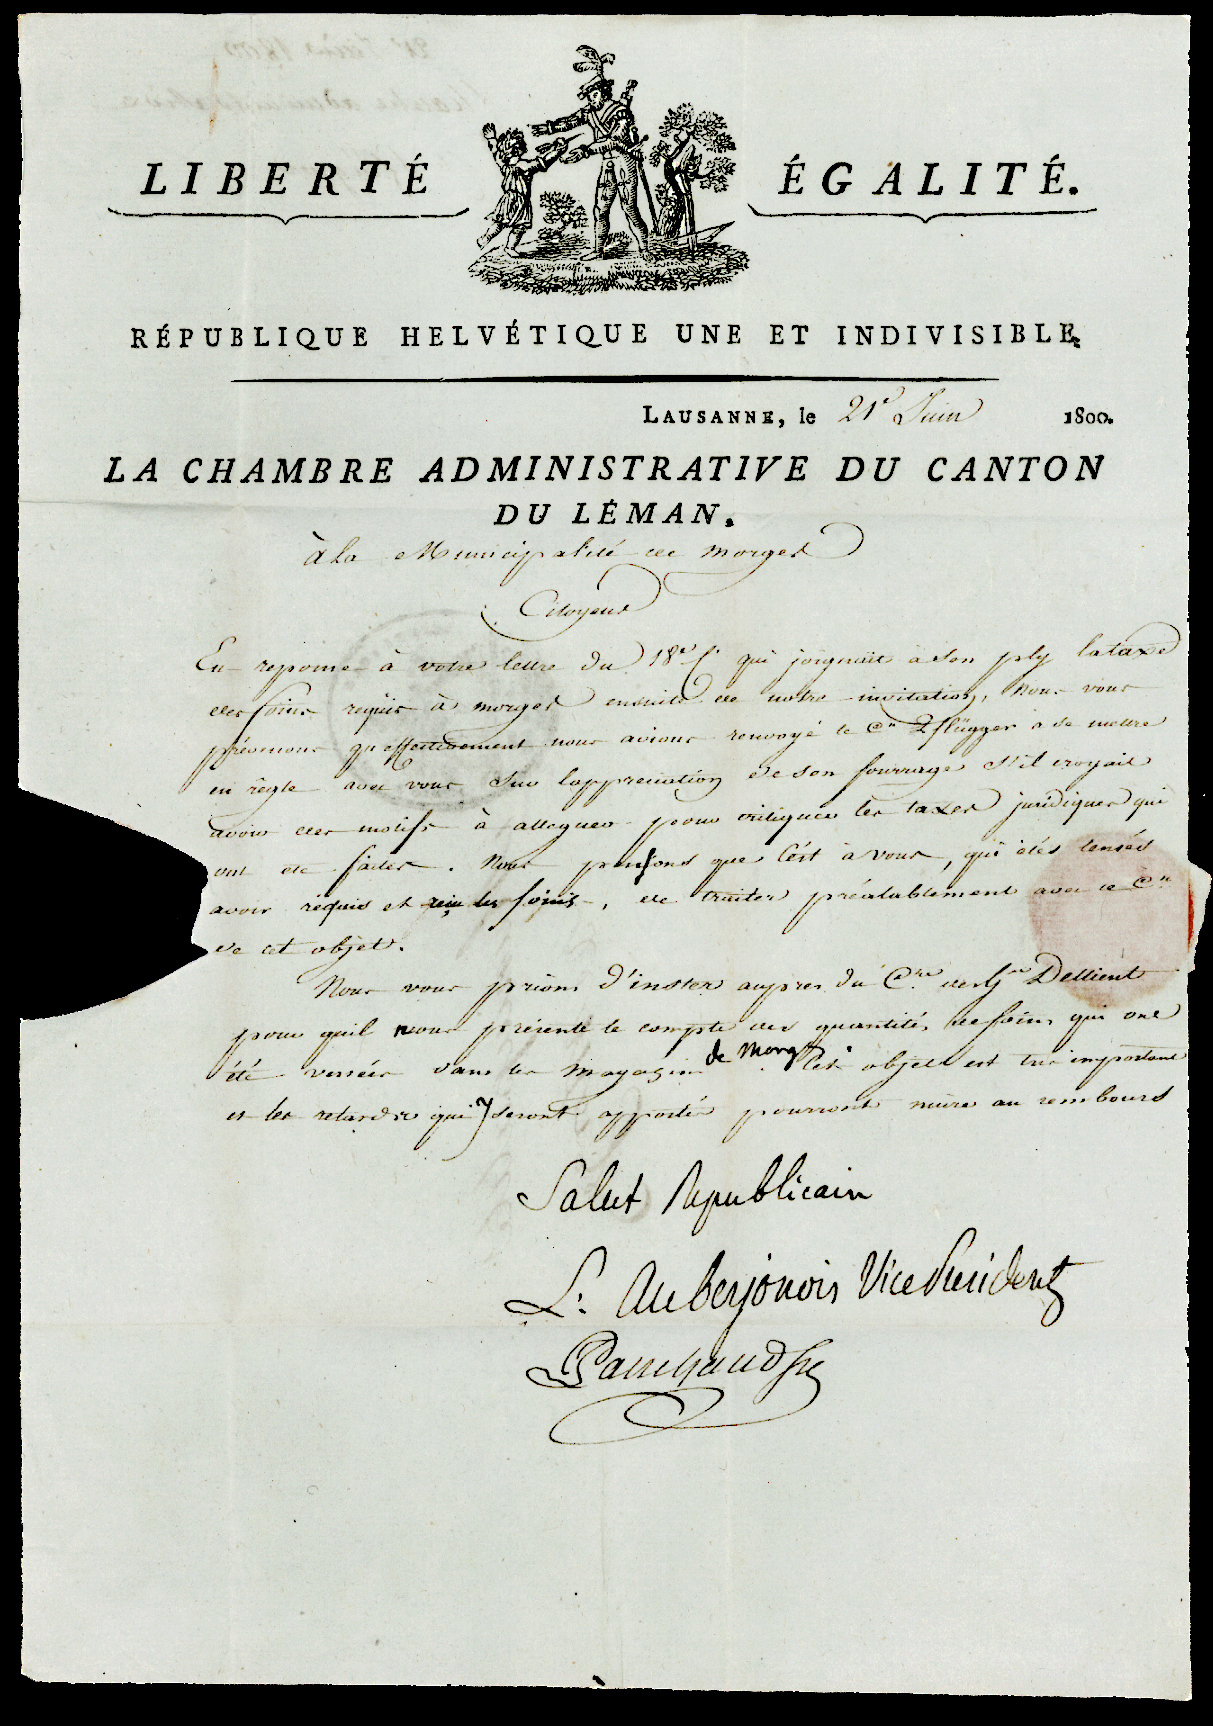 LIBERTÉ ÉGALITÉ.
RÉPUBLIQUE HELVÉTIQUE UNE ET INDIVISIBLE.
LAUSANNE, le 21e Juin 1800.
LA CHAMBRE ADMINISTRATIVE DU CANTON
DU LÉMAN.
à la Municipalité de Morges
Citoyens
En reponse à votre lettre du 18e Ct qui joignait à son ply la taxe
des foins requis à Morges ensuite de notre invitation, Nous vous
prévenons qu'effectivement nous avions renvoyé le Cn Pflügger à se mettre
en règle avec vous sur l'appreciation de son fourrage s'il croyait
avoir des motifs à alleguer pour critiquer les taxes juridiques qui
ont été faites. Nous pensons que c'est à vous, qui étés censés
avoir réquis et reçu les foins, de traiter préalablement avec ce Cn
de cet objet.
Nous vous prions d'inster aupres du Cre des Gre Dellient
pour qu'il nous présente le compte des quantités de foins qui ont
été versées dans les magazins de Morges. Cet objet est très important
et les retards qui y seront apportés pourront nuire au rembours
Salut Republicain
L: Auberjonois Vice President
Panchaud Sre